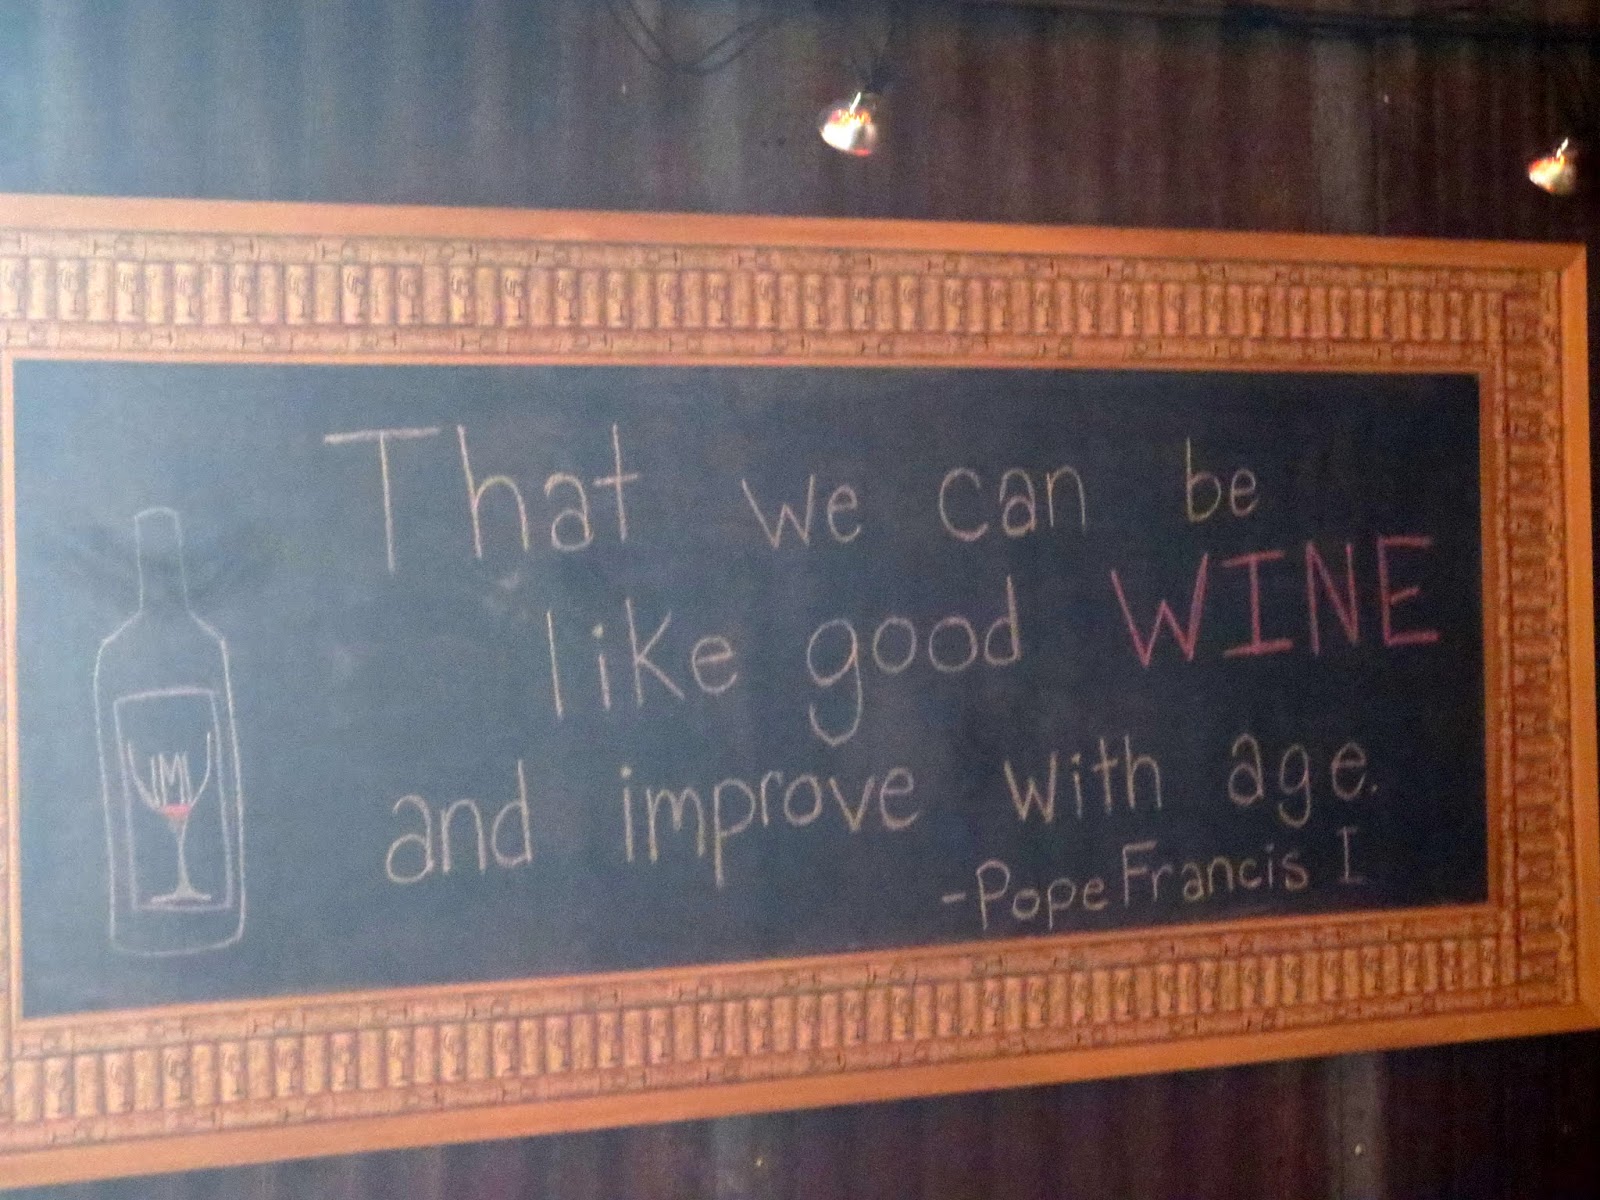 That we can be
like good WINE
and improve with age.
-Pope Francis I